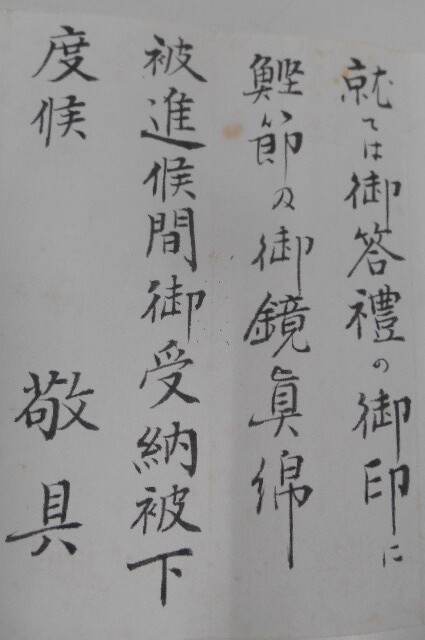 就ては御答禮の御印に
鰹節及御鏡眞綿
被進候間御受納被下
度候　敬具